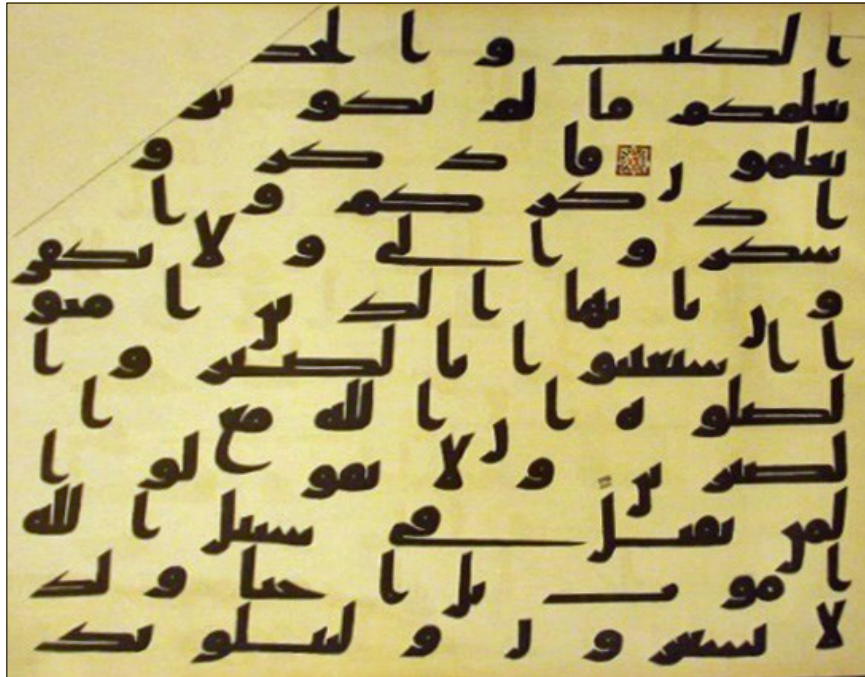 الكتب والحك
يعلمكم ما لم تكونو
تعلمون فاذكرو
اذكركم وا
شكروا لي ولا تكفر
ون يايها الذين امنو
ا استعينوا بالصبر وا
لصلوه ان الله مع ا
لصبرين ولا تقولوا
لمن يقتل في سبيل الله
اموت بل احيا ولك
لا تشعرون ولنبلونك